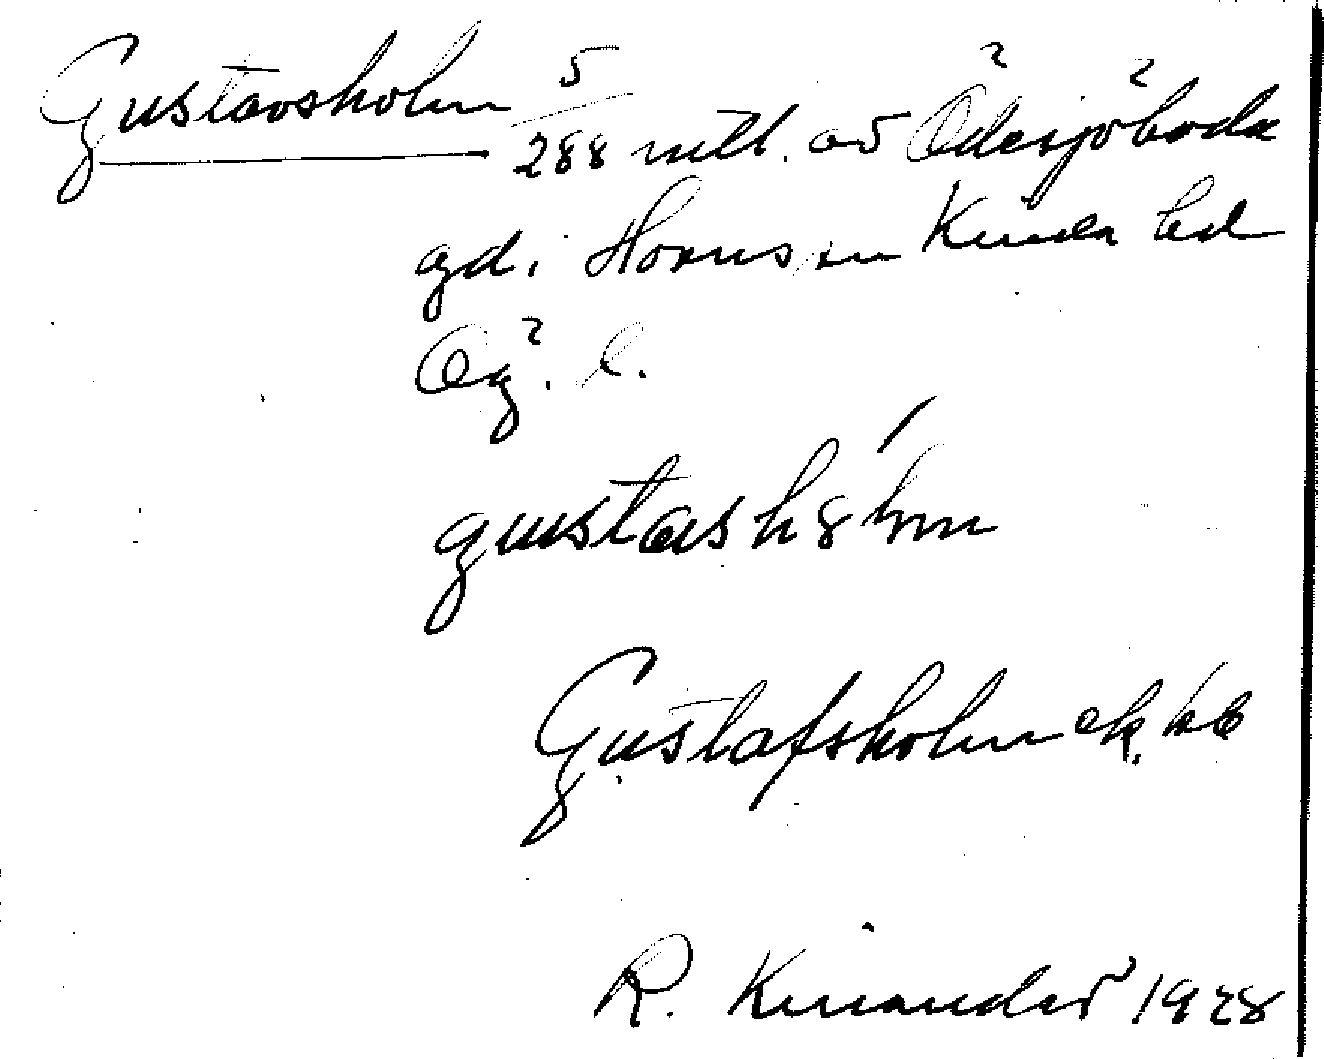 Gustavsholm 5/288 mtl. av Ödesjöboda
gd. i Horns sn Kinda hd
Ög. l.
gustash8´lm
Gustafsholm ek. kb
R. Kinander 1928